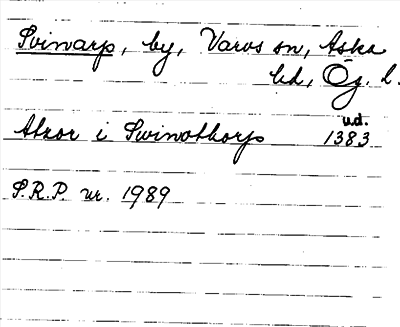 Svinarp, by, Varvs sn, Aska
hd, Ög. l.
Atzor i Swinothorp u.d. 1383
S.R.P. nr. 1989